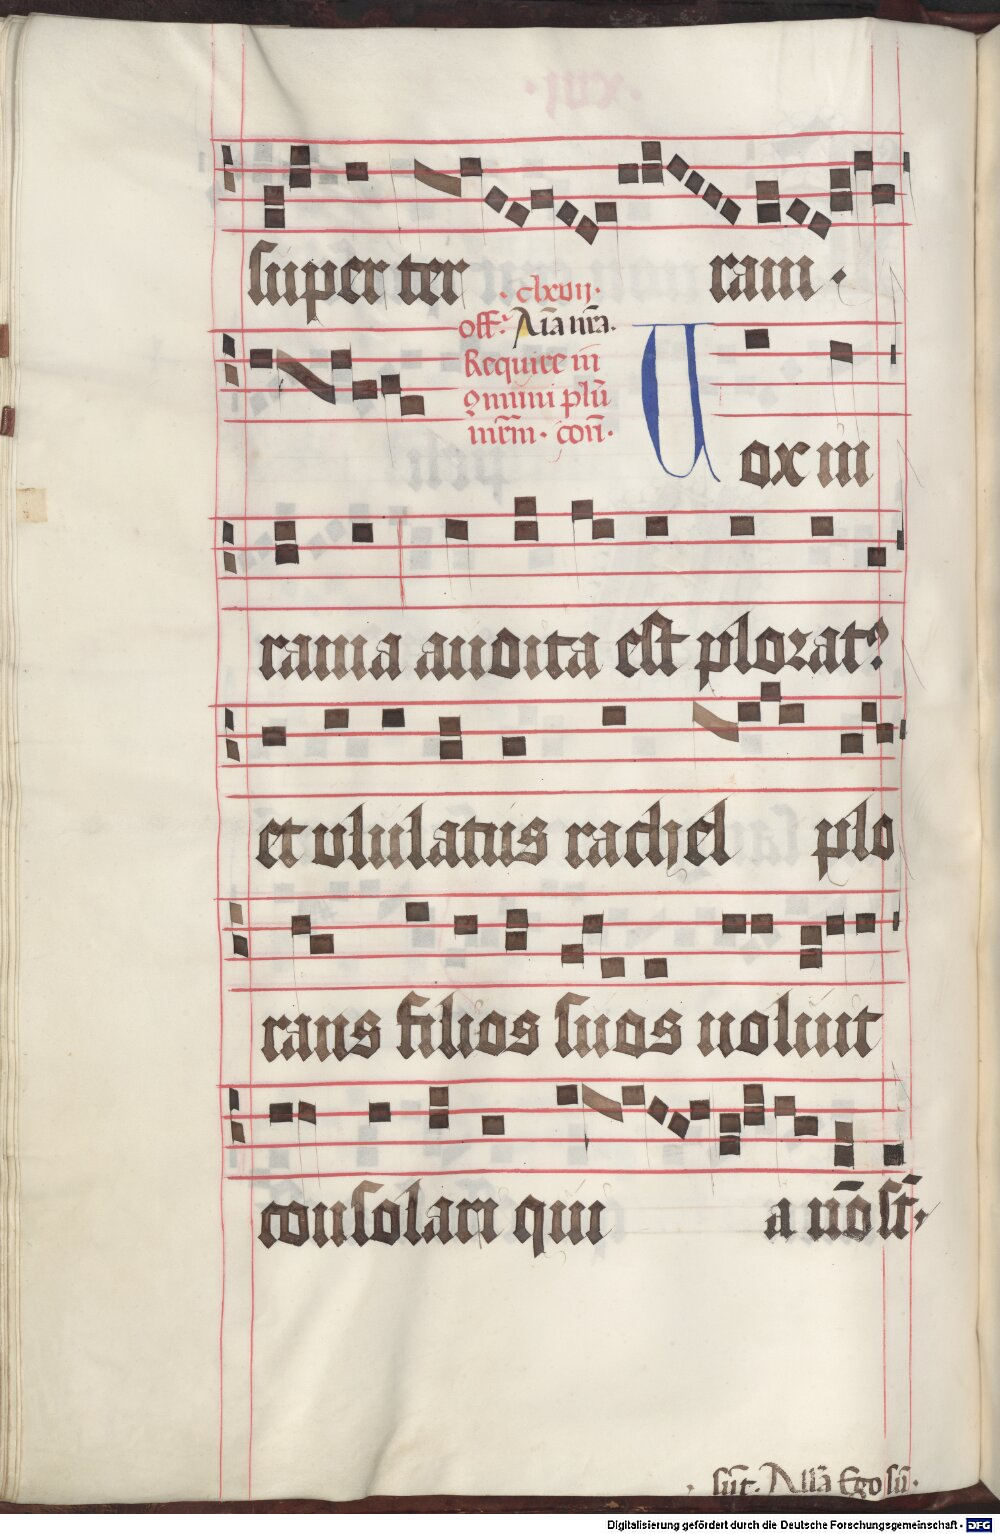 super ter ram.
.clxvii.
off. Aīa nr̄a.
Require in
9muni plu᷒
mr̄m. con̄.
Vox in
rama audita est plorat?
et ululatus rachel plo
rans filios suos noluit
consolari qui a nō st̄,
sūt. Allā Ego sū.
Digitalisierung gefördert durch die Deutsche Forschungsgemeinschaft - DFG